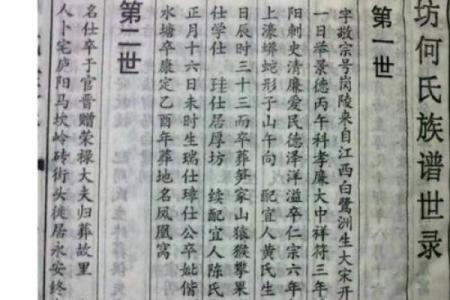 坊何氏族谱世录
第一世
字敬宗号岗陵来自江西白鹭洲生大宋开
一日举景德丙午科孝廉大中祥符三年
阳刺史清廉爱民德泽洋溢卒仁宗六年
上漆蟒蛇形子山午向 配宜人黄氏生
日辰时三十三而卒葬笋家山猿猴擎果
仕学仕 珪仕居厚坊 续配宜人陈氏
正月十六日未时生瑞仕璋仕公卒妣偕
水塘卒康定乙酉年葬地名凤凰窝
第二世
名仕卒于官晋赠荣禄大夫归葬故里
人卜宅庐阳马坎岭砖街头徒居永安终